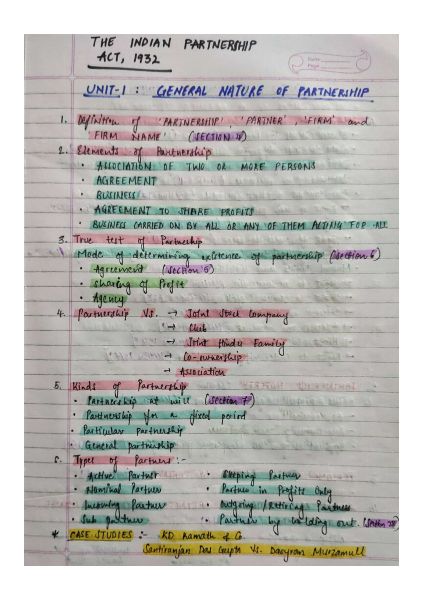 THE INDIAN PARTNERSHIP
ACT, 1932
UNIT-1 : GENERAL NATURE OF PARTNERSHIP
1. Definition of 'PARTNERSHIP' 'PARTNER', 'FIRM' and
FIRM NAME' (SECTION 4)
2. Elements of Partnership
• ASSOCIATION OF TWO OR MORE PERSONS
• AGREEMENT
• BUSINESS
• AGREEMENT TO SHARE PROFITS
• BUSINESS CARRIED ON BY ALL OR ANY OF THEM ACTING FOR ALL
3. True test of Partnership
Mode of determining existence of partnership (Section 6)
• Agreement (Section 5)
• Sharing of Profit
• Agency
4. Partnership Vs. → Joint Stock Company
→ Club
→ Joint Hindu Family
→ Co-ownership
→ Association
5. Kinds of Partnership
• Partnership at will (Section 7)
• Partnership for a fixed period
• Particular Partnership
• General partnership
6. Types of Partners :-
• Active Partner • Sleeping Partner
• Nominal Partner • Partner in Profits Only
• Incoming Partner • Outgoing / Retiring Partners
• Sub partner • Partner by holding out. (Section 28)
* CASE STUDIES :- KD Kamath & Co
Santiranjan Das Gupta Vs. Dasyran Murzamull